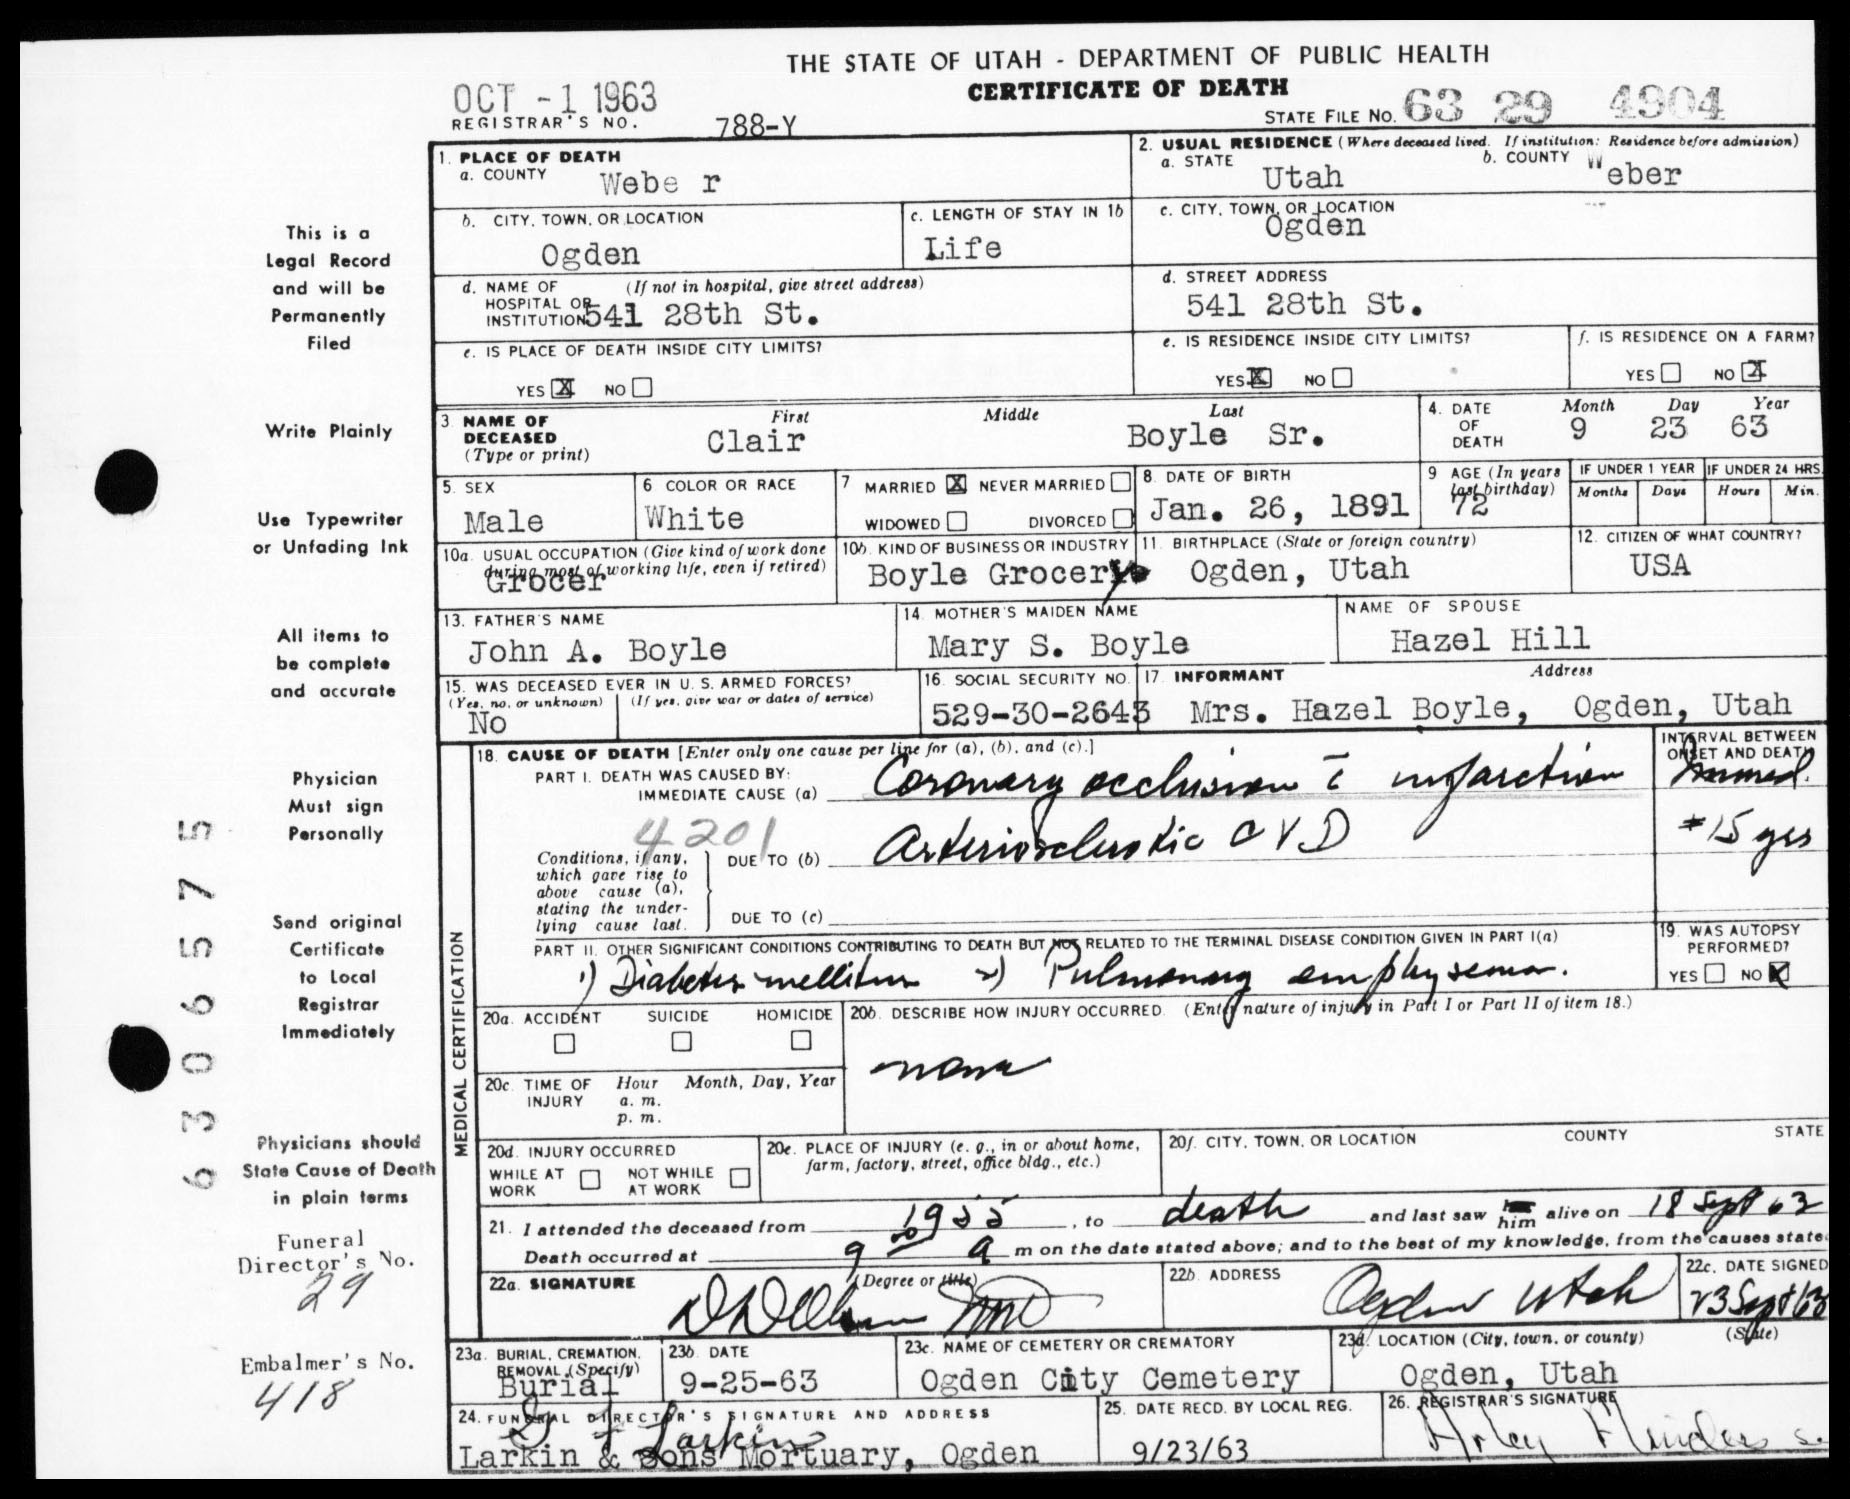 THE STATE OF UTAH - DEPARTMENT OF PUBLIC HEALTH
CERTIFICATE OF DEATH
OCT -1 1963
REGISTRAR'S NO. 788-Y
STATE FILE NO. 63 29 4904
1. PLACE OF DEATH
a. COUNTY Webe r
2. USUAL RESIDENCE (Where deceased lived. If institution: Residence before admission)
a. STATE Utah b. COUNTY Weber
b. CITY, TOWN, OR LOCATION Ogden
c. LENGTH OF STAY IN 1b Life
c. CITY, TOWN, OR LOCATION Ogden
d. NAME OF HOSPITAL OR INSTITUTION (If not in hospital, give street address) 541 28th St.
d. STREET ADDRESS 541 28th St.
e. IS PLACE OF DEATH INSIDE CITY LIMITS?
YES X NO
e. IS RESIDENCE INSIDE CITY LIMITS?
YES X NO
f. IS RESIDENCE ON A FARM?
YES NO X
3 NAME OF DECEASED (Type or print)
First Middle Last
Clair Boyle Sr.
4. DATE OF DEATH
Month Day Year
9 23 63
5. SEX Male
6 COLOR OR RACE White
7 MARRIED X NEVER MARRIED
WIDOWED DIVORCED
8. DATE OF BIRTH Jan. 26, 1891
9 AGE (In years last birthday) 72
IF UNDER 1 YEAR Months Days
IF UNDER 24 HRS. Hours Min.
10a. USUAL OCCUPATION (Give kind of work done during most of working life, even if retired) Grocer
10b. KIND OF BUSINESS OR INDUSTRY Boyle Grocery
11. BIRTHPLACE (State or foreign country) Ogden, Utah
12. CITIZEN OF WHAT COUNTRY? USA
13. FATHER'S NAME John A. Boyle
14. MOTHER'S MAIDEN NAME Mary S. Boyle
NAME OF SPOUSE Hazel Hill
15. WAS DECEASED EVER IN U. S. ARMED FORCES?
(Yes, no, or unknown) (If yes, give war or dates of service)
No
16. SOCIAL SECURITY NO. 529-30-2643
17. INFORMANT Address
Mrs. Hazel Boyle, Ogden, Utah
MEDICAL CERTIFICATION
18. CAUSE OF DEATH [Enter only one cause per line for (a), (b), and (c).]
INTERVAL BETWEEN ONSET AND DEATH
PART I. DEATH WAS CAUSED BY:
IMMEDIATE CAUSE (a) Coronary occlusion c̄ infarction Immed.
4201
Conditions, if any, which gave rise to above cause (a), stating the underlying cause last.
DUE TO (b) Arteriosclerotic CVD 15 yrs
DUE TO (c)
PART II. OTHER SIGNIFICANT CONDITIONS CONTRIBUTING TO DEATH BUT NOT RELATED TO THE TERMINAL DISEASE CONDITION GIVEN IN PART I(a)
1) Diabetes mellitus 2) Pulmonary emphysema.
19. WAS AUTOPSY PERFORMED?
YES NO X
20a. ACCIDENT SUICIDE HOMICIDE
20b. DESCRIBE HOW INJURY OCCURRED. (Enter nature of injury in Part I or Part II of item 18.)
none
20c. TIME OF INJURY Hour a. m. p. m. Month, Day, Year
20d. INJURY OCCURRED
WHILE AT WORK NOT WHILE AT WORK
20e. PLACE OF INJURY (e. g., in or about home, farm, factory, street, office bldg., etc.)
20f. CITY, TOWN, OR LOCATION COUNTY STATE
21. I attended the deceased from 1955, to death and last saw him alive on 18 Sept 63
Death occurred at 9 00 a m on the date stated above; and to the best of my knowledge, from the causes state
22a. SIGNATURE (Degree or title) MD
22b. ADDRESS Ogden Utah
22c. DATE SIGNED 23 Sept 63
23a. BURIAL, CREMATION, REMOVAL (Specify) Burial
23b. DATE 9-25-63
23c. NAME OF CEMETERY OR CREMATORY Ogden City Cemetery
23d. LOCATION (City, town, or county) (State)
Ogden, Utah
24. FUNERAL DIRECTOR'S SIGNATURE AND ADDRESS
Larkin
Larkin & Sons Mortuary, Ogden
25. DATE RECD. BY LOCAL REG. 9/23/63
26. REGISTRAR'S SIGNATURE
This is a
Legal Record
and will be
Permanently
Filed
Write Plainly
Use Typewriter
or Unfading Ink
All items to
be complete
and accurate
Physician
Must sign
Personally
Send original
Certificate
to Local
Registrar
Immediately
Physicians should
State Cause of Death
in plain terms
Funeral
Director's No.
29
Embalmer's No.
418
6306575